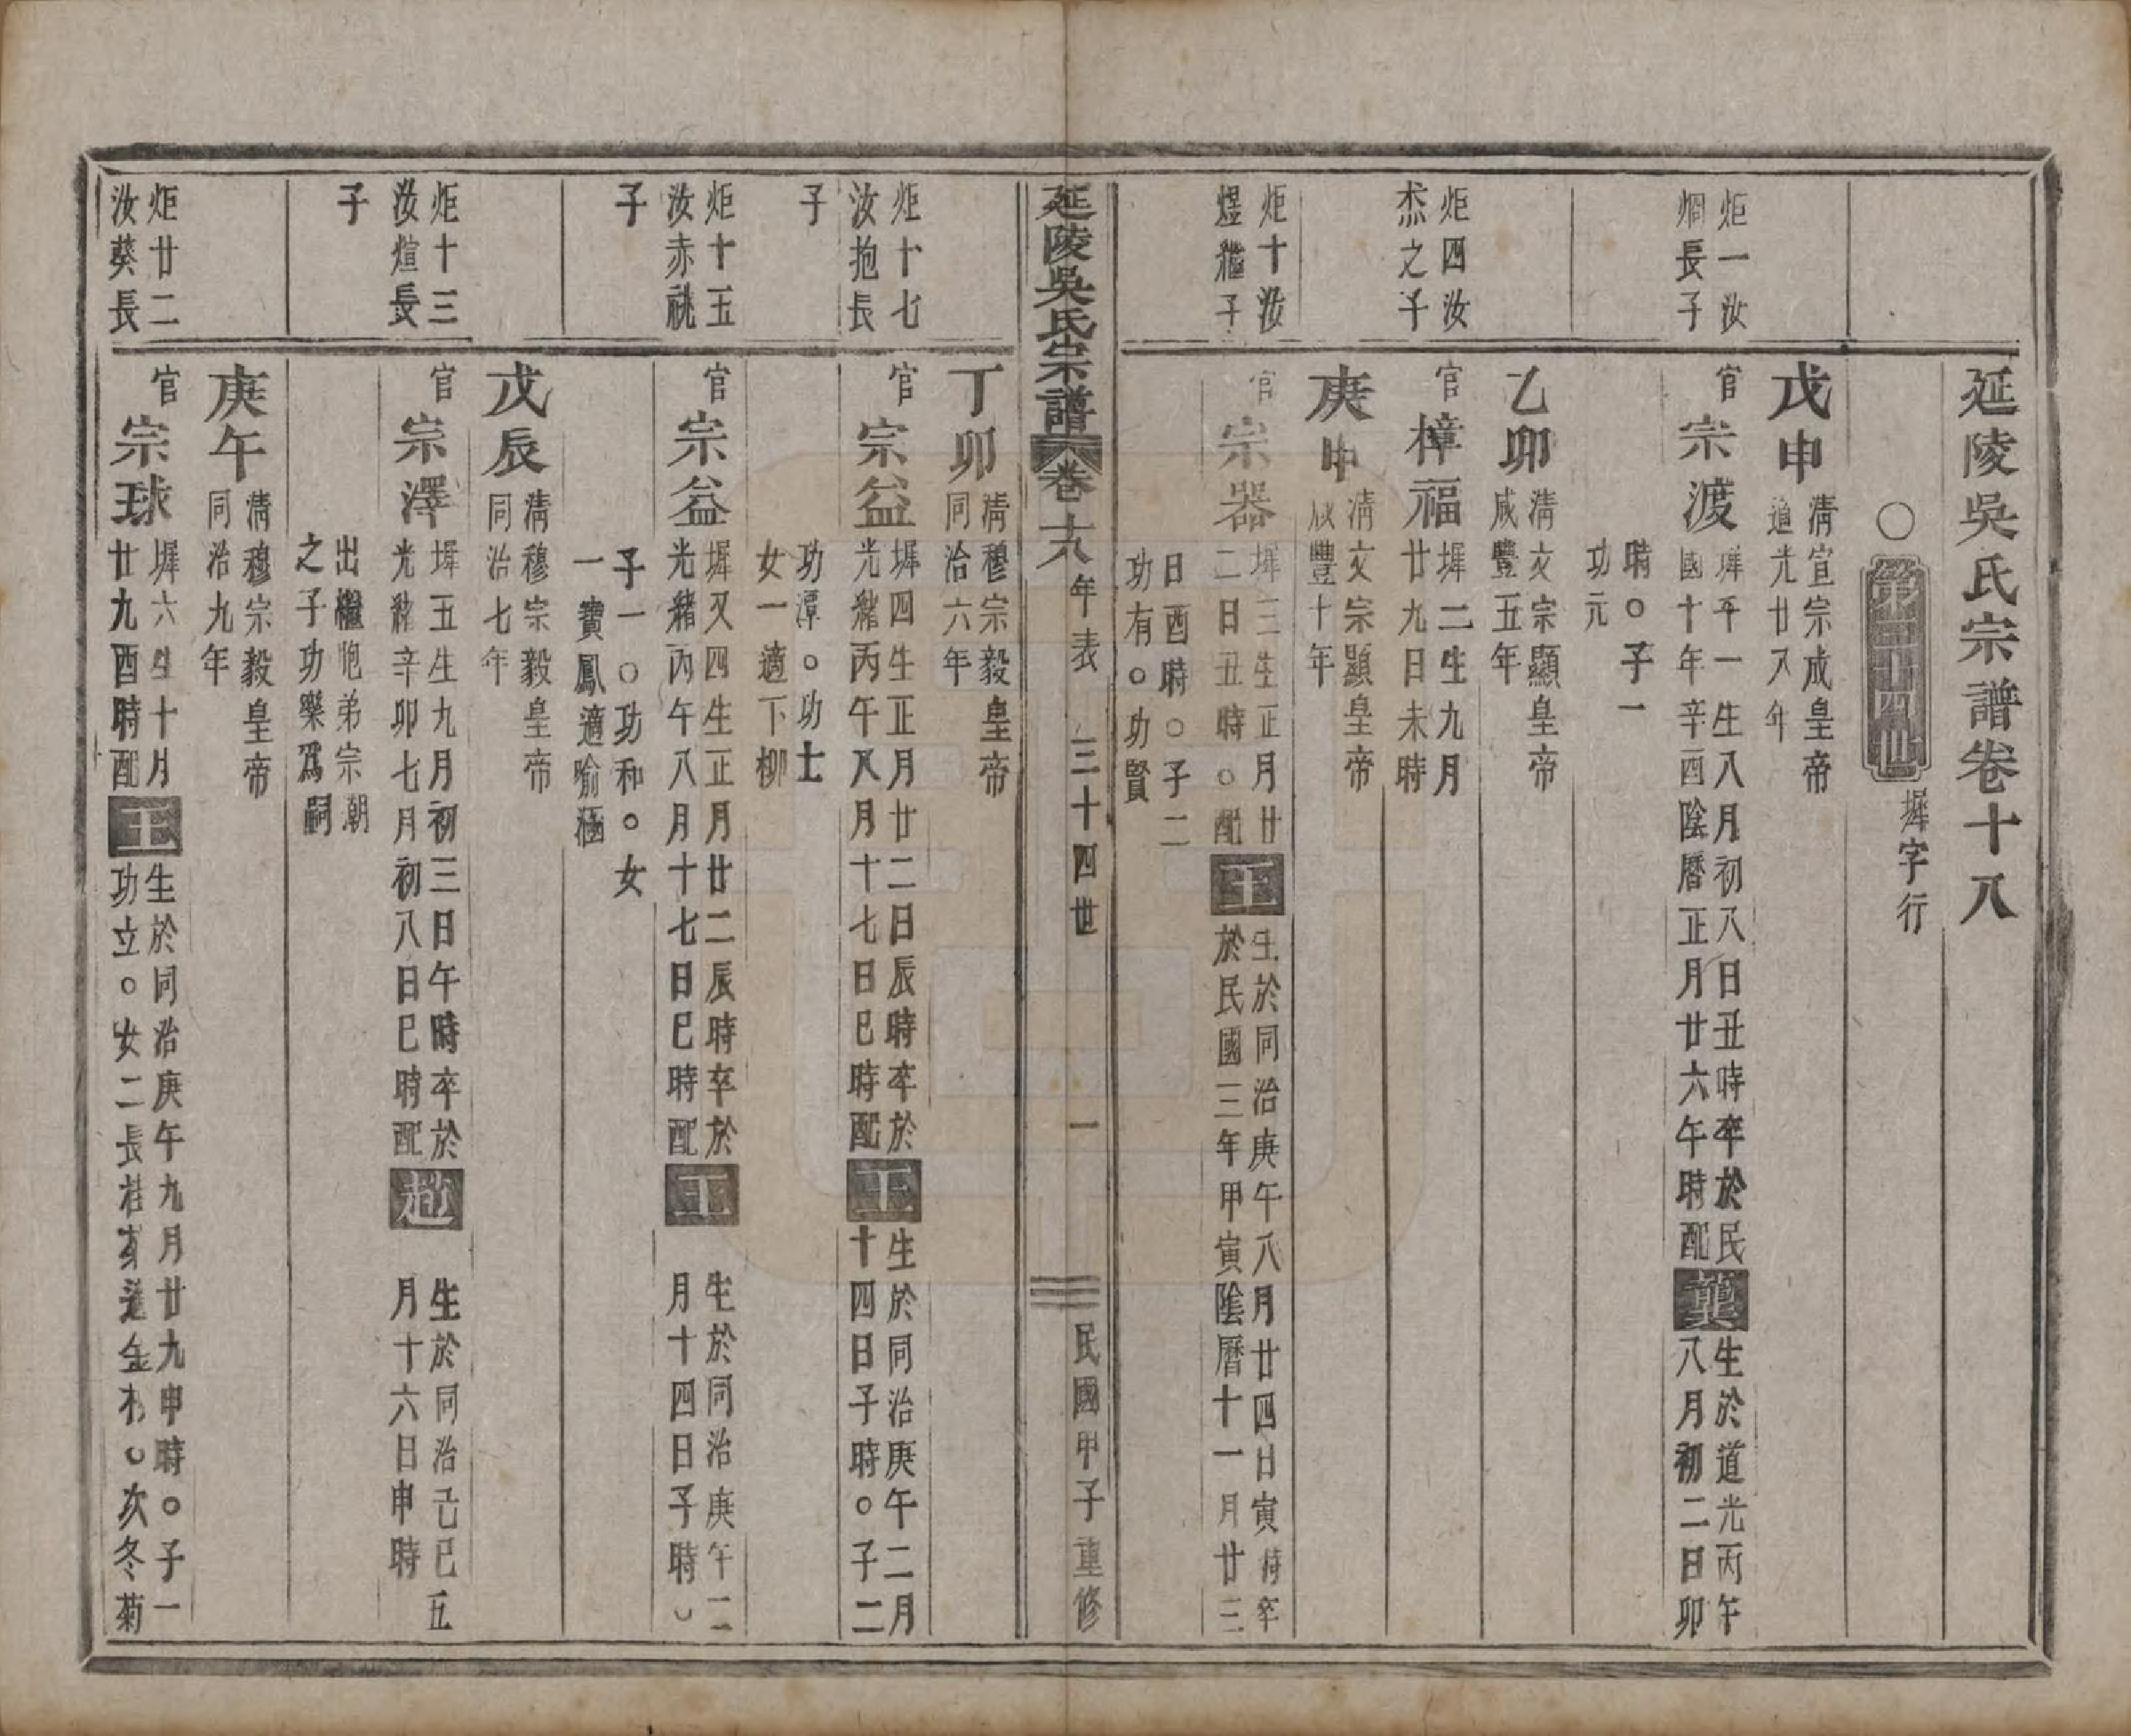 延陵吳氏宗譜卷十八
○第三十四世 墀字行
戊申 清宣宗成皇帝
道光廿八年
炬一汝
烱長子
官宗渡 墀平一生八月初八日丑時卒於民
國十年辛酉陰曆正月廿六午時配龔生於道光丙午
八月初二日卯
時○子一
功元
乙卯 清文宗顯皇帝
咸豐五年
炬四汝
烋之子
官樟福 墀二生九月
廿九日未時
庚申 清文宗顯皇帝
咸豐十年
炬十汝
煜繼子
官宗器 墀三生正月廿
二日丑時○配王生於同治庚午八月廿四日寅時卒
於民國三年甲寅陰曆十一月廿三
日酉時○子二
功有○功賢
延陵吳氏宗譜 卷十八 年表 三十四世 一 民國甲子重修
丁卯 清穆宗毅皇帝
同治六年
炬十七
汝抱長
子
官宗益 墀四生正月廿二日辰時卒於
光緒丙午八月十七日巳時配王生於同治庚午二月
十四日子時○子二
功潭○功士
女一適下柳
炬十五
汝赤祧
子
官宗益 墀又四生正月廿二辰時卒於
光緒丙午八月十七日巳時配王生於同治庚午二
月十四日子時○
子一○功和○女
一寶鳳適喻涵
戊辰 清穆宗毅皇帝
同治七年
炬十三
汝煊長
子
官宗澤 墀五生九月初三日午時卒於
光緒辛卯七月初八日巳時配趙生於同治己巳五
月十六日申時
出繼胞弟宗朝
之子功樂爲嗣
庚午 清穆宗毅皇帝
同治九年
炬廿二
汝葵長
官宗球 墀六生十月
廿九酉時配王生於同治庚午九月廿九申時○子一
功立○女二長桂適金村○次冬菊